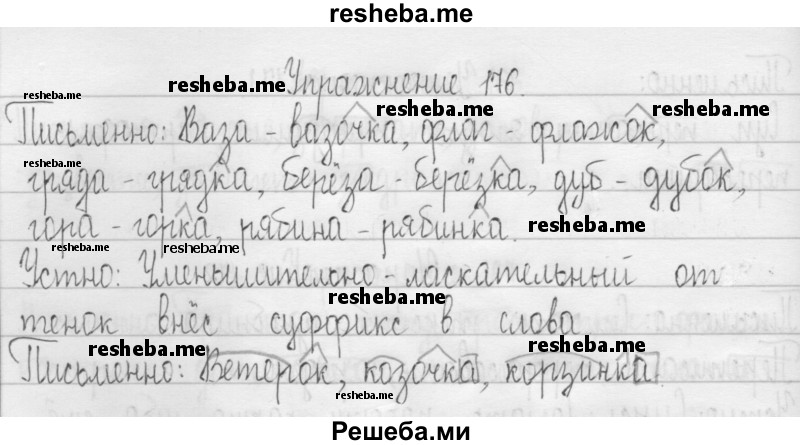 resheba.me
Упражнение 176.
resheba.me resheba.me resheba.me resheba.me
Письменно: Ваза - вазочка, флаг - флажок,
resheba.me
гряда - грядка, берёза - берёзка, дуб - дубок,
гора - горка, рябина - рябинка.
resheba.me resheba.me resheba.me
Устно: Уменьшительно-ласкательный от
resheba.me
тенок внёс суффикс в слова
resheba.me resheba.me
Письменно: Ветерок, козочка, корзинка.
resheba.me
Решеба.ми